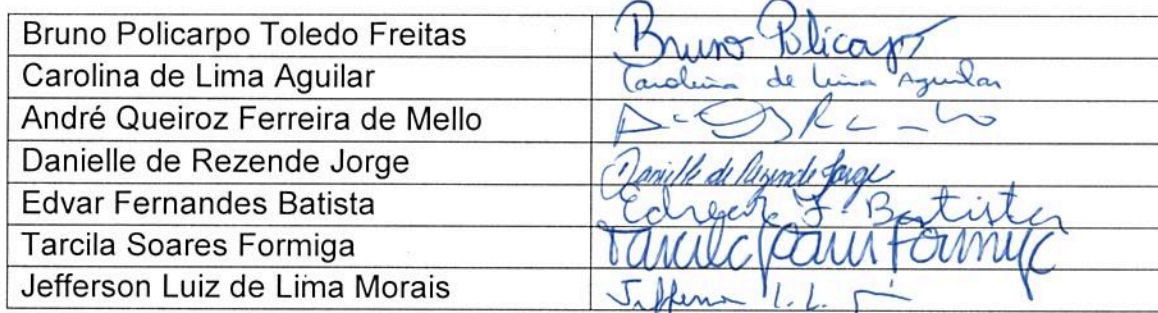 Bruno Policarpo Toledo Freitas Bruno Policarpo
Carolina de Lima Aguilar Carolina de Lima Aguilar
André Queiroz Ferreira de Mello
Danielle de Rezende Jorge Danielle de Rezende Jorge
Edvar Fernandes Batista Edvar F. Batista
Tarcila Soares Formiga Tarcila Soares Formiga
Jefferson Luiz de Lima Morais Jefferson L. L.